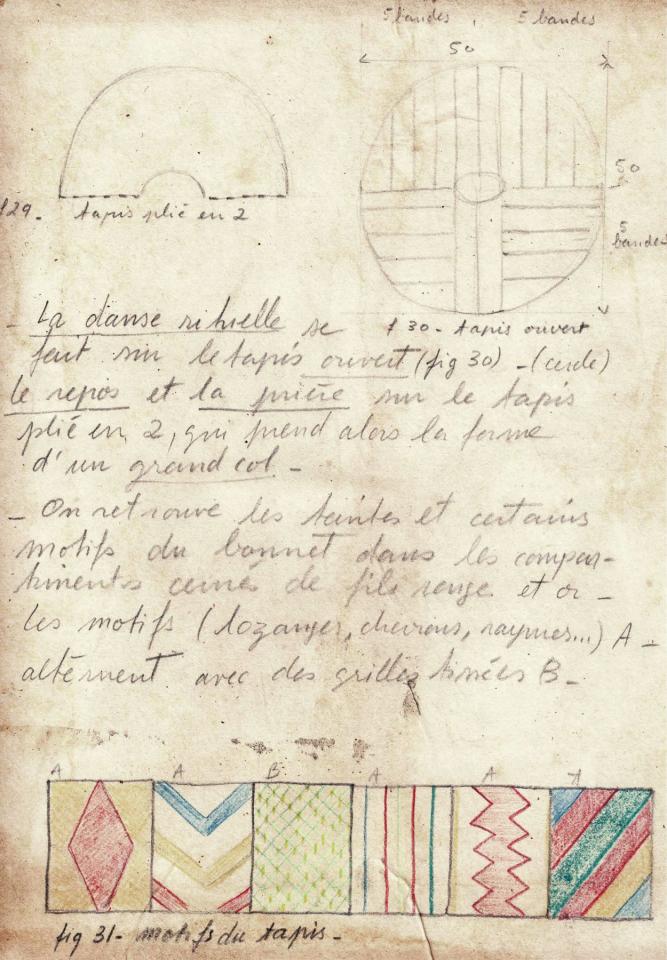 5 bandes , 5 bandes
50
50
5
bandes
f29-
tapis plié en 2
f30 - tapis ouvert
- La danse rituelle se
fait sur le tapis ouvert (fig 30) - (cercle)
le repos et la prière sur le tapis
plié en 2, qui prend alors la forme
d'un grand col -
- On retrouve les teintes et certains
motifs du bonnet dans les compar-
timents cernés de fils rouge et or -
les motifs (lozanges, chevrons, rayures...) A -
alternent avec des grilles tissées B -
A A B A A A
fig 31 - motifs du tapis -